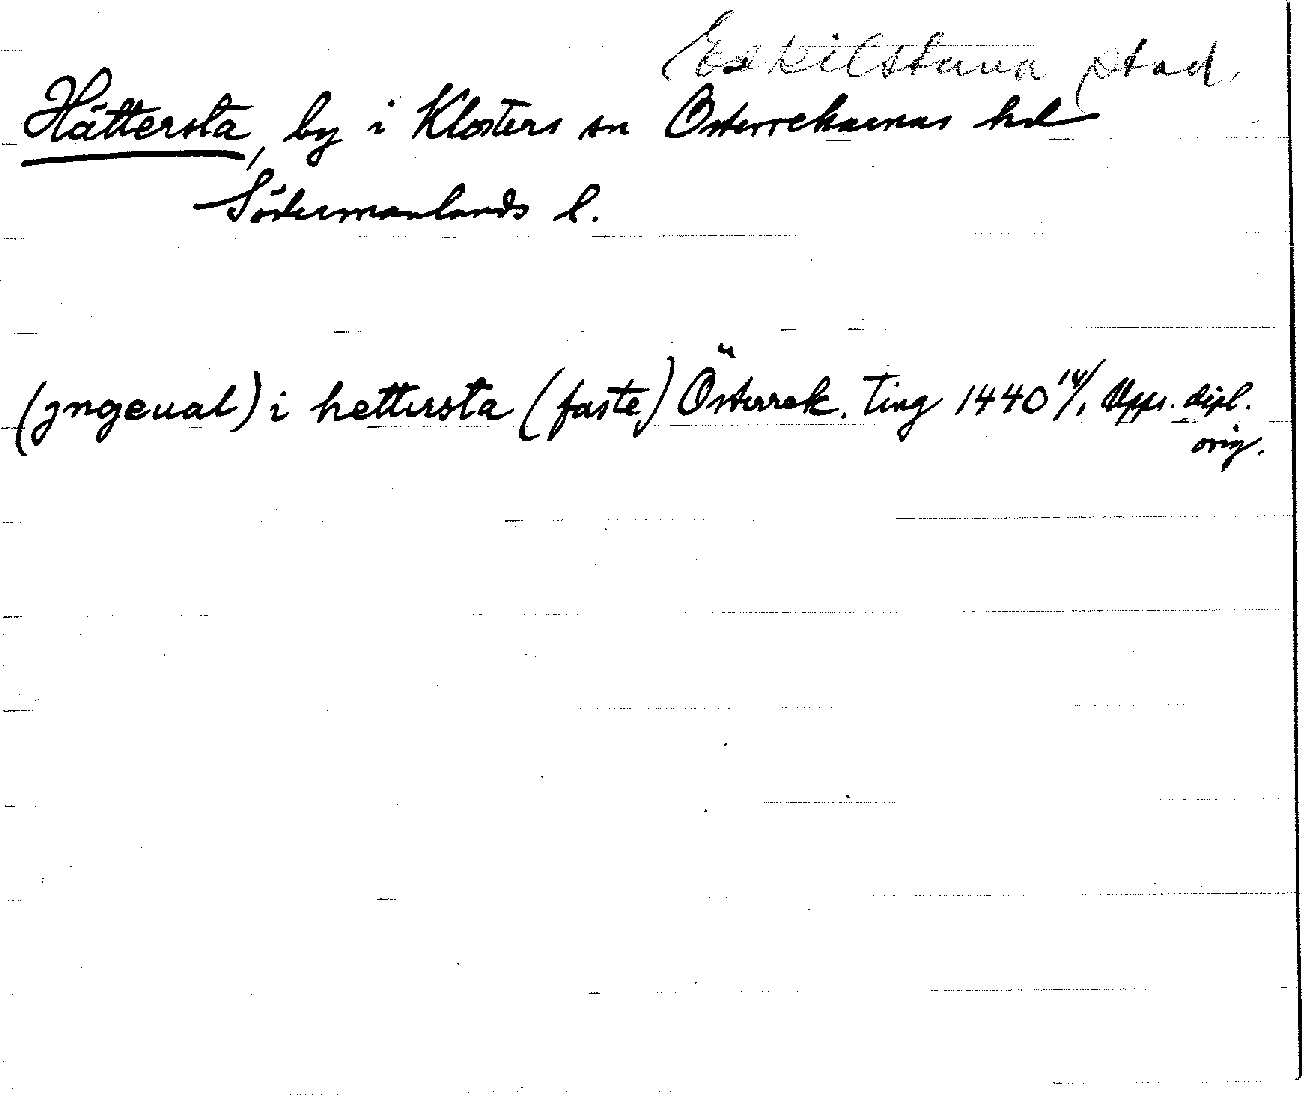 Eskilstuna stad
Hättersta, by i Klosters sn Österrekarnas hd
Södermanlands l.
(jngeual) i hettersta (faste) Österrek. Ting 1440 14/1 Upps. dipl.
orig.